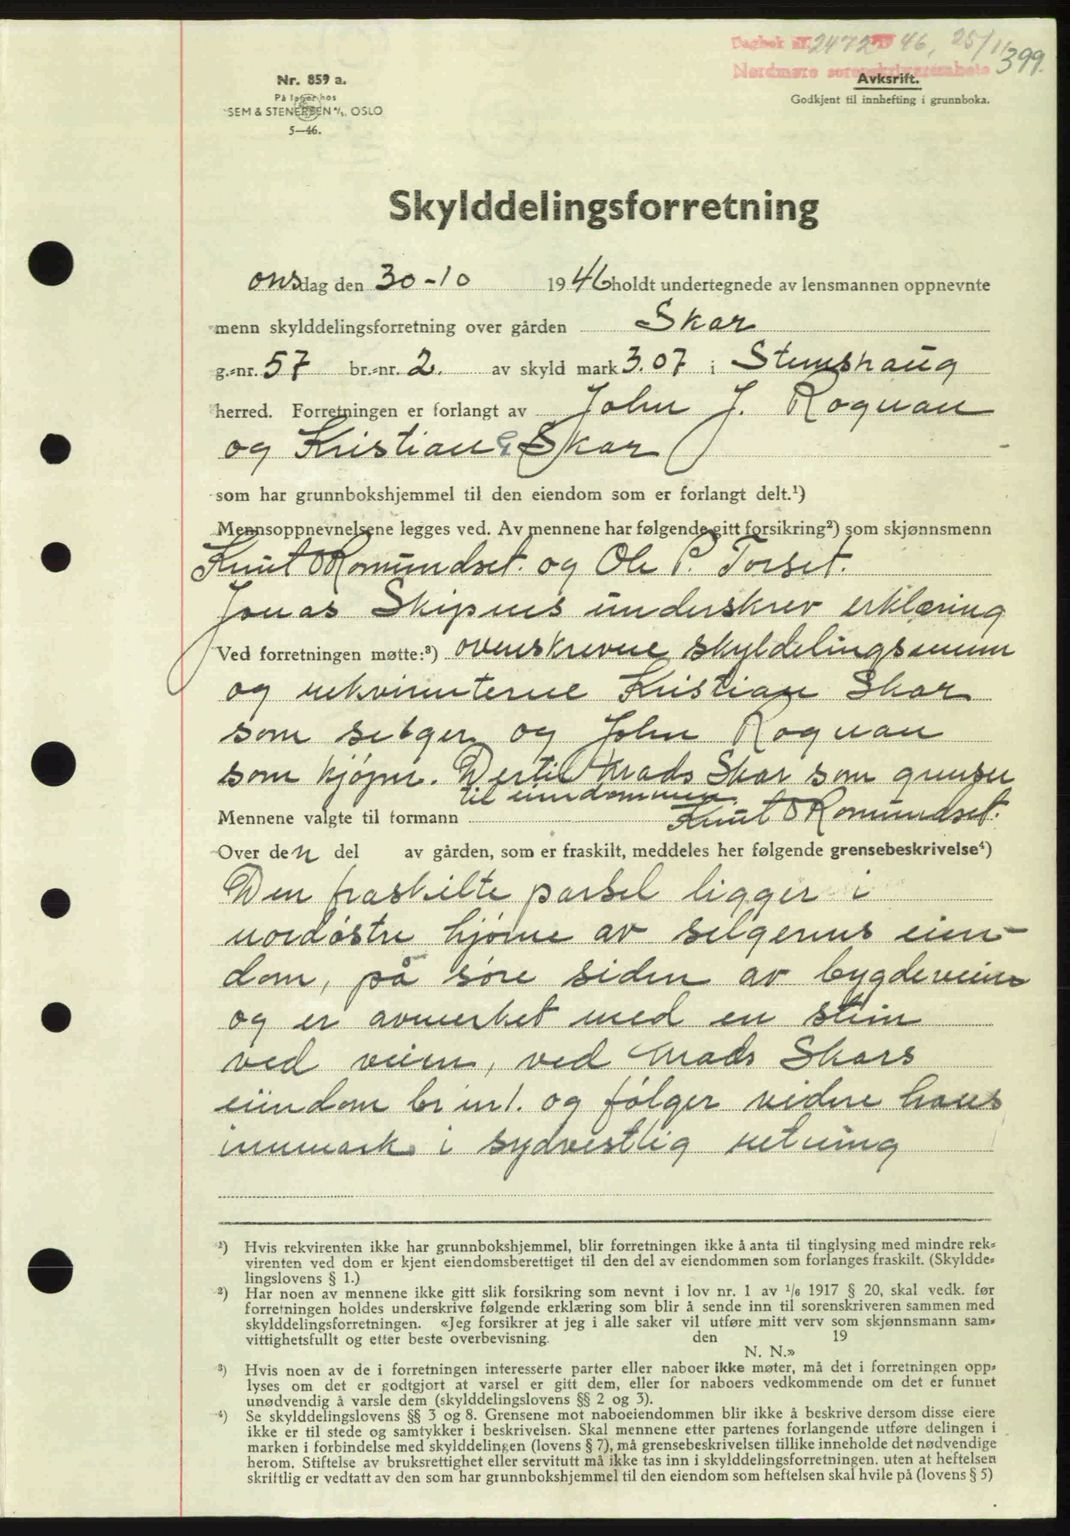 Dagbok nr. 2472 1946, 25/11
Nordmøre sorenskriverembete 399.
Nr. 859 a.
På lager hos
SEM & STENERSEN A/S, OSLO
5—46.
Avksrift.
Godkjent til innhefting i grunnboka.
Skylddelingsforretning
onsdag den 30-10 1946 holdt undertegnede av lensmannen oppnevnte
menn skylddelingsforretning over gården Skar
g.-nr. 57 br.-nr. 2. av skyld mark 3.07 i Stemshaug
herred. Forretningen er forlangt av John J. Rognan
og Kristian G Skar
som har grunnbokshjemmel til den eiendom som er forlangt delt.¹)
Mennsoppnevnelsene legges ved. Av mennene har følgende gitt forsikring²) som skjønnsmenn
Knut O Romundset. og Ole P. Torset.
Jonas Skipnes underskrev erklæring
Ved forretningen møtte:³) ovenskrevne skyldelingsmenn
og rekvirentene Kristian Skar
som selger og John Rognan
som kjøper. Dertil Mads Skar som grenser
til eiendommen.
Mennene valgte til formann Knut O Romundset.
Over den del av gården, som er fraskilt, meddeles her følgende grensebeskrivelse⁴)
Den fraskilte parsel ligger i
nordøstre hjørne av selgerens eien-
dom, på søre siden av bygdeveien
og er avmerket med en stein
ved veien, ved Mads Skars
eiendom br nr 1. og følger videre hans
innmark i sydvestlig retning
¹) Hvis rekvirenten ikke har grunnbokshjemmel, blir forretningen ikke å anta til tinglysing med mindre rek-
virenten ved dom er kjent eiendomsberettiget til den del av eiendommen som forlanges fraskilt. (Skyldde-
lingslovens § 1.)
²) Har noen av mennene ikke gitt slik forsikring som nevnt i lov nr. 1 av 1/6 1917 § 20, skal vedk. før
forretningen holdes underskrive følgende erklæring som blir å sende inn til sorenskriveren sammen med
skylddelingsforretningen. «Jeg forsikrer at jeg i alle saker vil utføre mitt verv som skjønnsmann sam-
vittighetsfullt og etter beste overbevisning. den 19
N. N.»
³) Hvis noen av de i forretningen interesserte parter eller naboer ikke møter, må det i forretningen opp-
lyses om det er godtgjort at varsel er gitt dem, eller for naboers vedkommende om det er funnet
unødvendig å varsle dem (skylddelingslovens §§ 2 og 3).
⁴) Se skylddelingslovens §§ 3 og 8. Grensene mot naboeiendommen blir ikke å beskrive dersom disse eiere
ikke er til stede og samtykker i beskrivelsen. Skal mennene etter partenes forlangende utføre delingen i
marken i forbindelse med skylddelingen (lovens § 7), må grensebeskrivelsen tillike inneholde det nødvendige
herom. Stiftelse av bruksrettighet eller servitutt må ikke tas inn i skylddelingsforretningen. uten at heftelsen
skriftlig er vedtatt av den som har grunnbokshjemmel til den eiendom som heftelsen skal hvile på (lovens § 5)